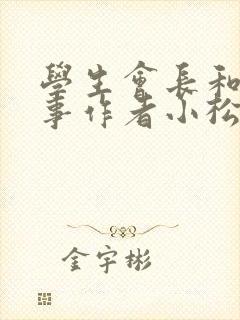 學生會長和
事作者小松
金宇彬